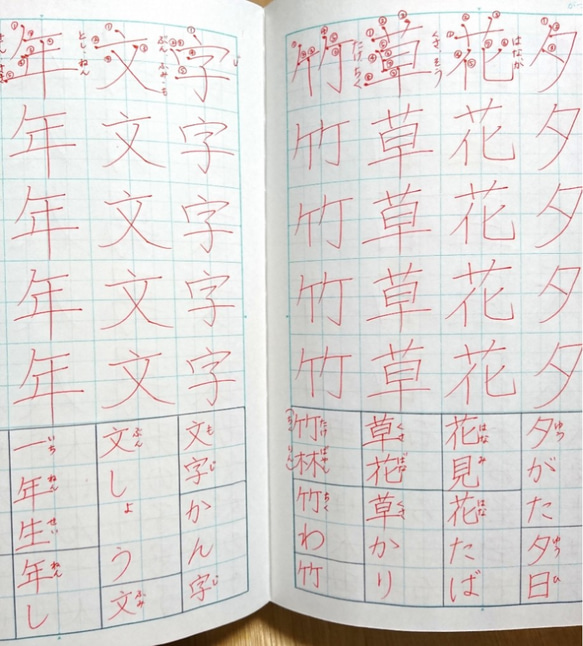 夕夕夕夕夕
夕がた夕日
ゆう
ゆう
ひ
はな か
花花花花花
花見花たば
はな
み
はな
くさ そう
草草草草草
草花草かり
くさ
ばな
くさ
たけ ちく
竹竹竹竹竹
竹林竹わ竹
たけ
ばやし
ちく
ちく
りん
じ
字字字字字
文字かん字
も
じ
じ
ぶん ふみ・も
文文文文文
文しょう文
ぶん
ふみ
とし ねん
年年年年年
一年生年し
いち
ねん
せい
ねん